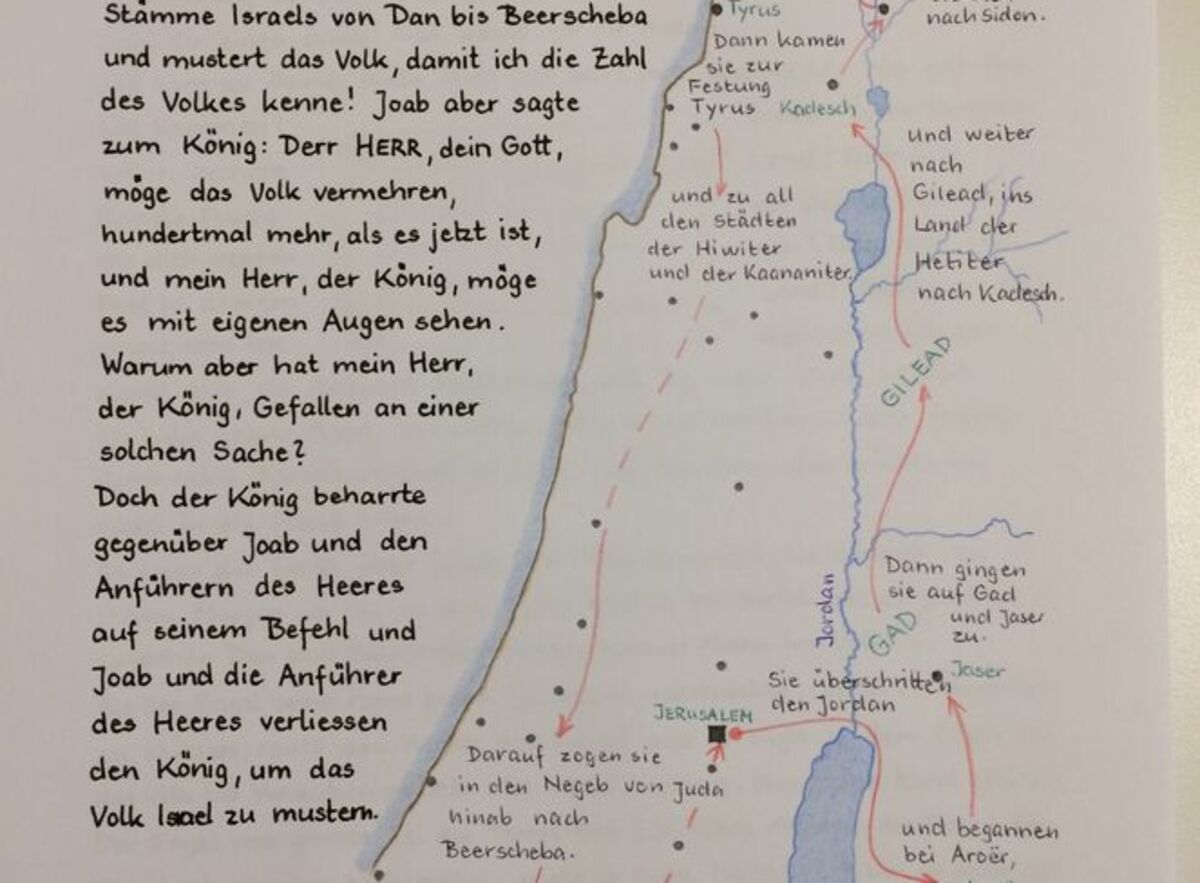 Stämme Israels von Dan bis Beerscheba
und mustert das Volk, damit ich die Zahl
des Volkes kenne! Joab aber sagte
zum König: Derr HERR, dein Gott,
möge das Volk vermehren,
hundertmal mehr, als es jetzt ist,
und mein Herr, der König, möge
es mit eigenen Augen sehen.
Warum aber hat mein Herr,
der König, Gefallen an einer
solchen Sache?
Doch der König beharrte
gegenüber Joab und den
Anführern des Heeres
auf seinem Befehl und
Joab und die Anführer
des Heeres verliessen
den König, um das
Volk Israel zu mustern.
Tyrus
nach Sidon.
Dann kamen
sie zur
Festung
Tyrus
Kadesch
und weiter
nach
Gilead, ins
Land der
Hetiter
nach Kadesch.
und zu all
den Städten
der Hiwiter
und der Kaananiter.
GILEAD
Jordan
Dann gingen
sie auf Gad
und Jaser
zu.
GAD
Jaser
Sie überschritten
den Jordan
JERUSALEM
Darauf zogen sie
in den Negeb von Juda
hinab nach
Beerscheba.
und begannen
bei Aroër,